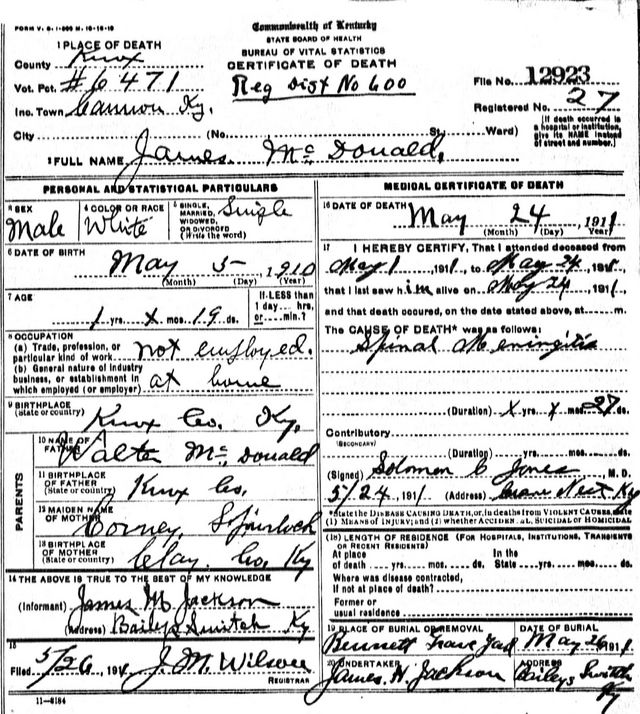 FORM V. S. 1-500 M. 10-18-10
Commonwealth of Kentucky
STATE BOARD OF HEALTH
BUREAU OF VITAL STATISTICS
CERTIFICATE OF DEATH
1 PLACE OF DEATH
County Knox
Vot. Pct. #6471
Reg Dist No 600
File No. 12923
Inc. Town Cannon Ky.
Registered No. 27
City (No. St. Ward)
(If death occurred in a hospital or institution, give its NAME instead of street and number.)
2 FULL NAME James Mc Donald,
PERSONAL AND STATISTICAL PARTICULARS
3 SEX Male
4 COLOR OR RACE White
5 SINGLE, MARRIED, WIDOWED OR DIVORCED (Write the word) Single
6 DATE OF BIRTH
May 5 , 1910
(Month) (Day) (Year)
7 AGE
1 yrs. x mos. 19 ds.
If LESS than 1 day, hrs. or min.?
8 OCCUPATION
(a) Trade, profession, or particular kind of work not employed.
(b) General nature of industry business, or establishment in which employed (or employer) at home
9 BIRTHPLACE
(State or country) Knox Co. Ky.
PARENTS
10 NAME OF FATHER Walter Mc Donald
11 BIRTHPLACE OF FATHER
(State or country) Knox Co.
12 MAIDEN NAME OF MOTHER
13 BIRTHPLACE OF MOTHER
(State or country) Clay Co. Ky
14 THE ABOVE IS TRUE TO THE BEST OF MY KNOWLEDGE
(Informant) James M. Jackson
(Address) Baileys Switch Ky
15
Filed 5/26 191 J. M. Wilson
REGISTRAR
11-8184
MEDICAL CERTIFICATE OF DEATH
16 DATE OF DEATH
May 24 1911
(Month) (Day) (Year)
17 I HEREBY CERTIFY, That I attended deceased from
May 1 , 1911, to May 24 1911,
that I last saw him alive on May 24 1911,
and that death occured, on the date stated above, at m.
The CAUSE OF DEATH* was as follows:
Spinal Meningitis
(Duration) x yrs. x mos. 27 ds.
Contributory
(SECONDARY)
(Duration) yrs. mos. ds.
(Signed) Solomon C Jones M. D.
5/24, 1911 (Address) Ky
*State the DISEASE CAUSING DEATH, or, in deaths from VIOLENT CAUSES, state
(1) MEANS OF INJURY; and (2) whether ACCIDENTAL, SUICIDAL OR HOMICIDAL
(18) LENGTH OF RESIDENCE (FOR HOSPITALS, INSTITUTIONS, TRANSIENTS OR RECENT RESIDENTS)
At place of death yrs. mos. ds.
In the State yrs. mos. ds.
Where was disease contracted,
If not at place of death?
Former or usual residence
19 PLACE OF BURIAL OR REMOVAL
Bennett Grave Yard
DATE OF BURIAL
May 26 1911
20 UNDERTAKER
James H. Jackson
ADDRESS
Baileys Switch Ky